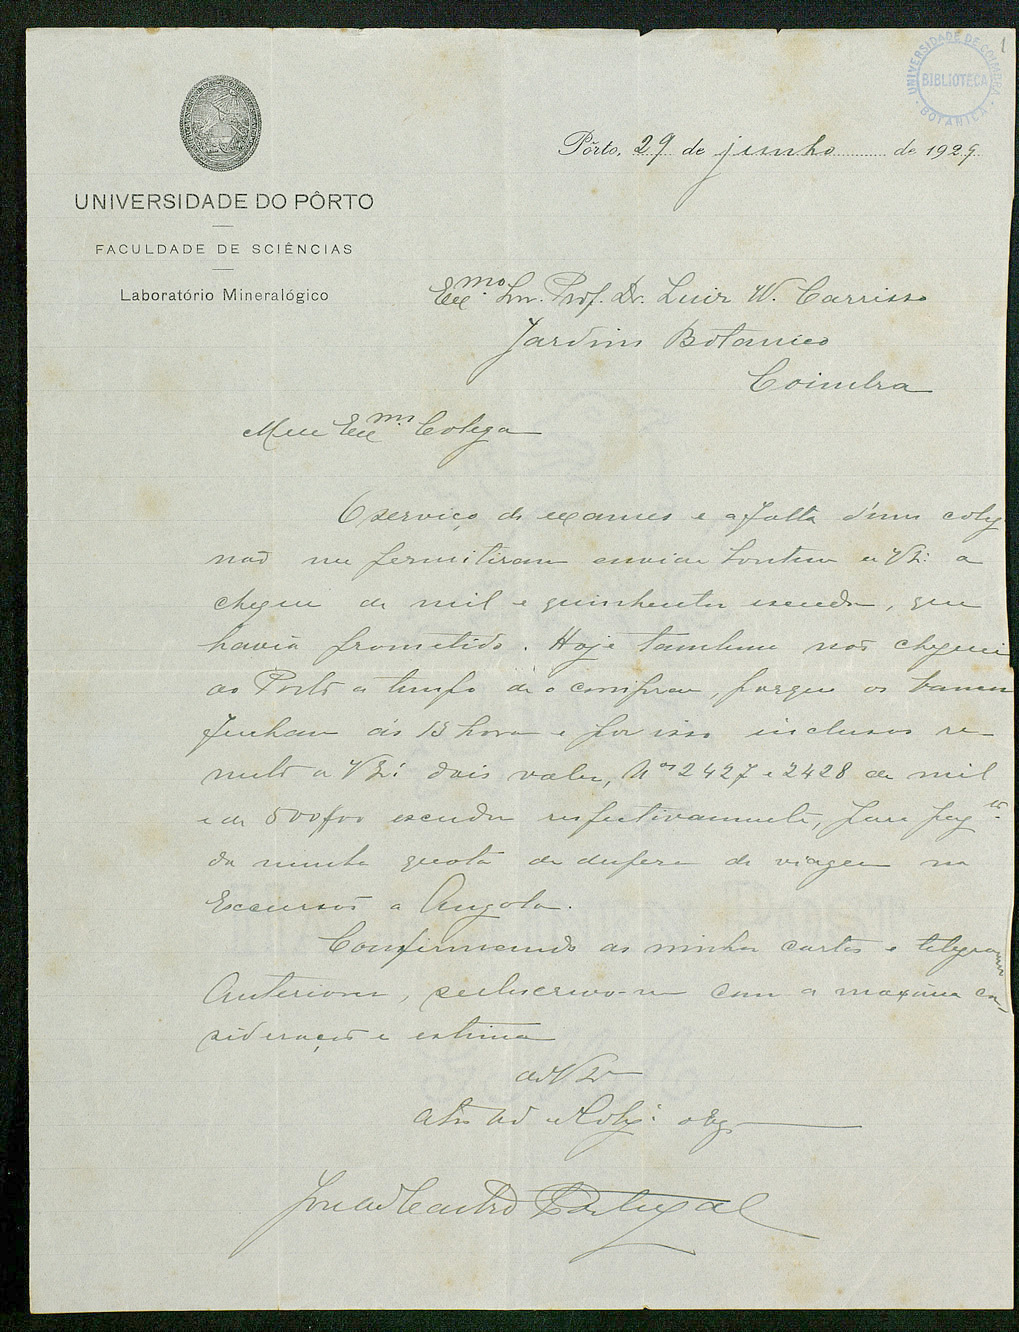 1
UNIVERSIDADE DE COIMBRA
BIBLIOTECA
BOTANICA
Pôrto, 29 de junho de 1929
UNIVERSIDADE DO PÔRTO
FACULDADE DE SCIÊNCIAS
Laboratório Mineralógico
Exmo. Snr. Prof. Dr. Luiz W. Carrisso
Jardim Botanico
Coimbra
Meu Exmo. Colega
O serviço de exames e a falta d'um coleg
não me permitiram enviar hontem a V. Ex.ª o
cheque de mil e quinhentos escudos, que
havia promettido. Hoje tambem não cheguei
ao Porto a tempo de o comprar, porque os bancos
fecham ás 13 horas e por isso inclusos re-
metto a V. Ex.ª dois vales, Nos 2427 e 2428 de mil
e de 500$00 escudos respectivamente, para pag.to
da minha quota de despeza de viagem na
Excursão a Angola.
Confirmando as minhas cartas e telegramas
Anteriores, subscrevo-me com a maxima con-
sideração e estima
de V. Ex.ª
At.to Ven.or Coleg.ª obg.
José de Castro Portugal